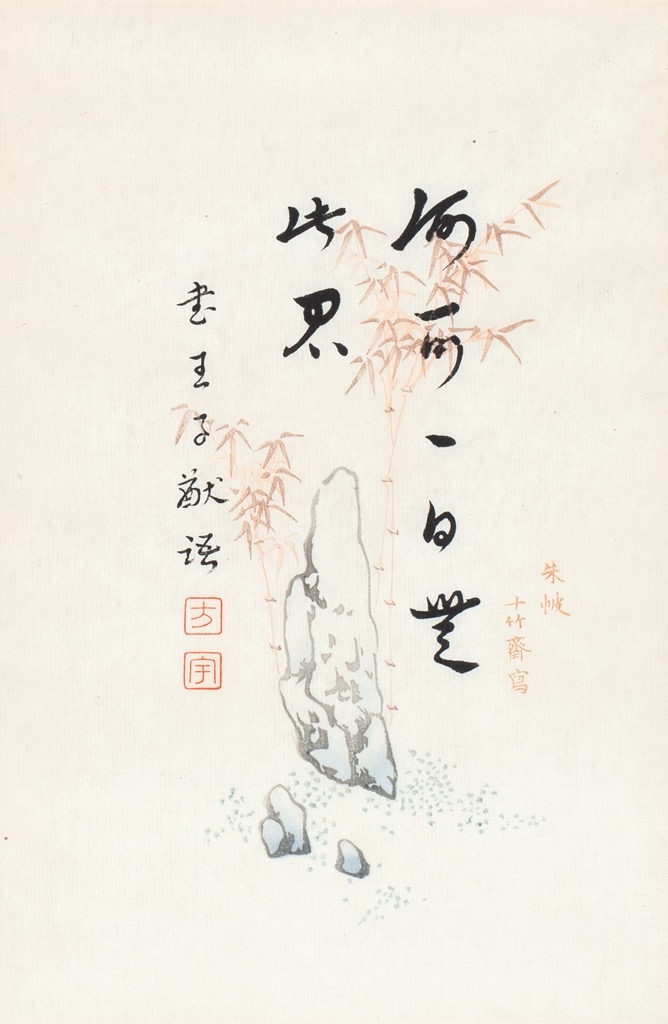 朱
十竹齋寫
何可一日無
此君
書王子猷語
方
宇